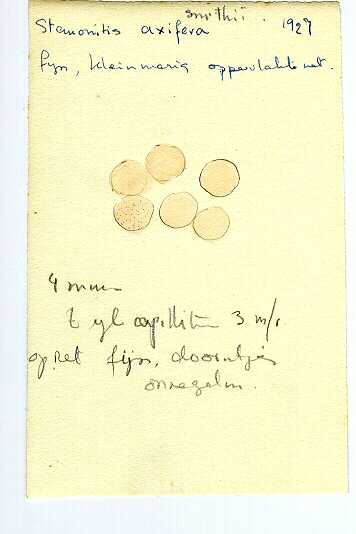 smithii.
Stemonitis axifera 1927
fijn, kleinmazig oppervlakte net.
4 mm
capillitium 3 m/.
opp.net fijn, doorntjes
onregelm.